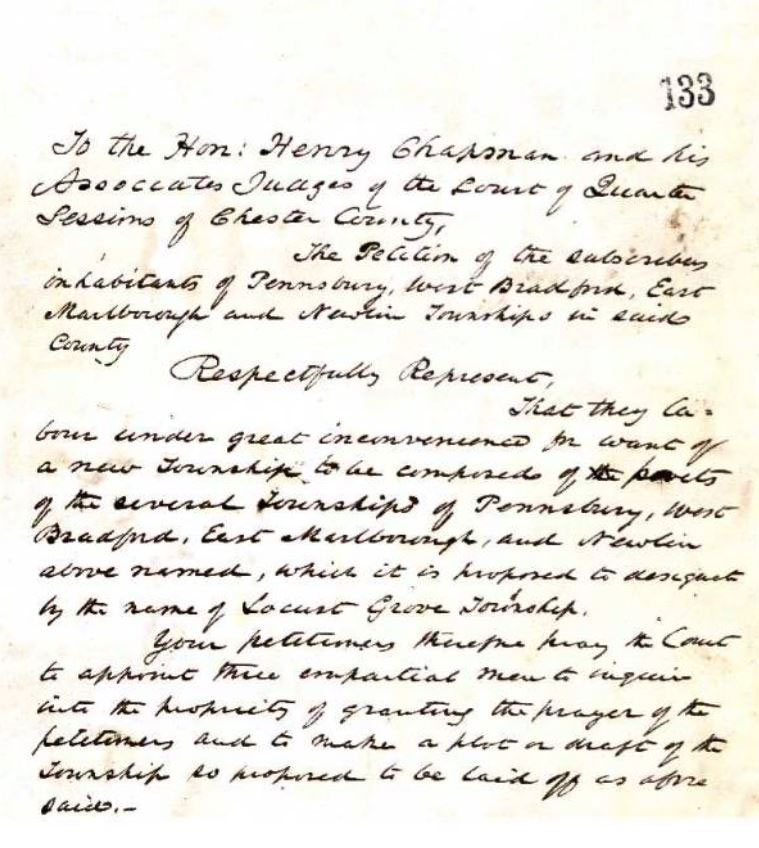 133
To the Hon: Henry Chapman and his
Associates Judges of the Court of Quarter
Sessions of Chester County,
The Petition of the subscribers
inhabitants of Pennsbury, West Bradford, East
Marlborough and Newlin Townships in said
County
Respectfully Represent,
That they la=
bour under great inconvenience for want of
a new Township to be composed of the parts
of the several Townships of Pennsbury, West
Bradford, East Marlborough, and Newlin
above named, which it is proposed to designate
by the name of Locust Grove Township.
Your petitioners therefore pray the Court
to appoint three impartial men to inquire
into the propriety of granting the prayer of the
petitioners and to make a plot or draft of the
Township so proposed to be laid off as afore
said.-